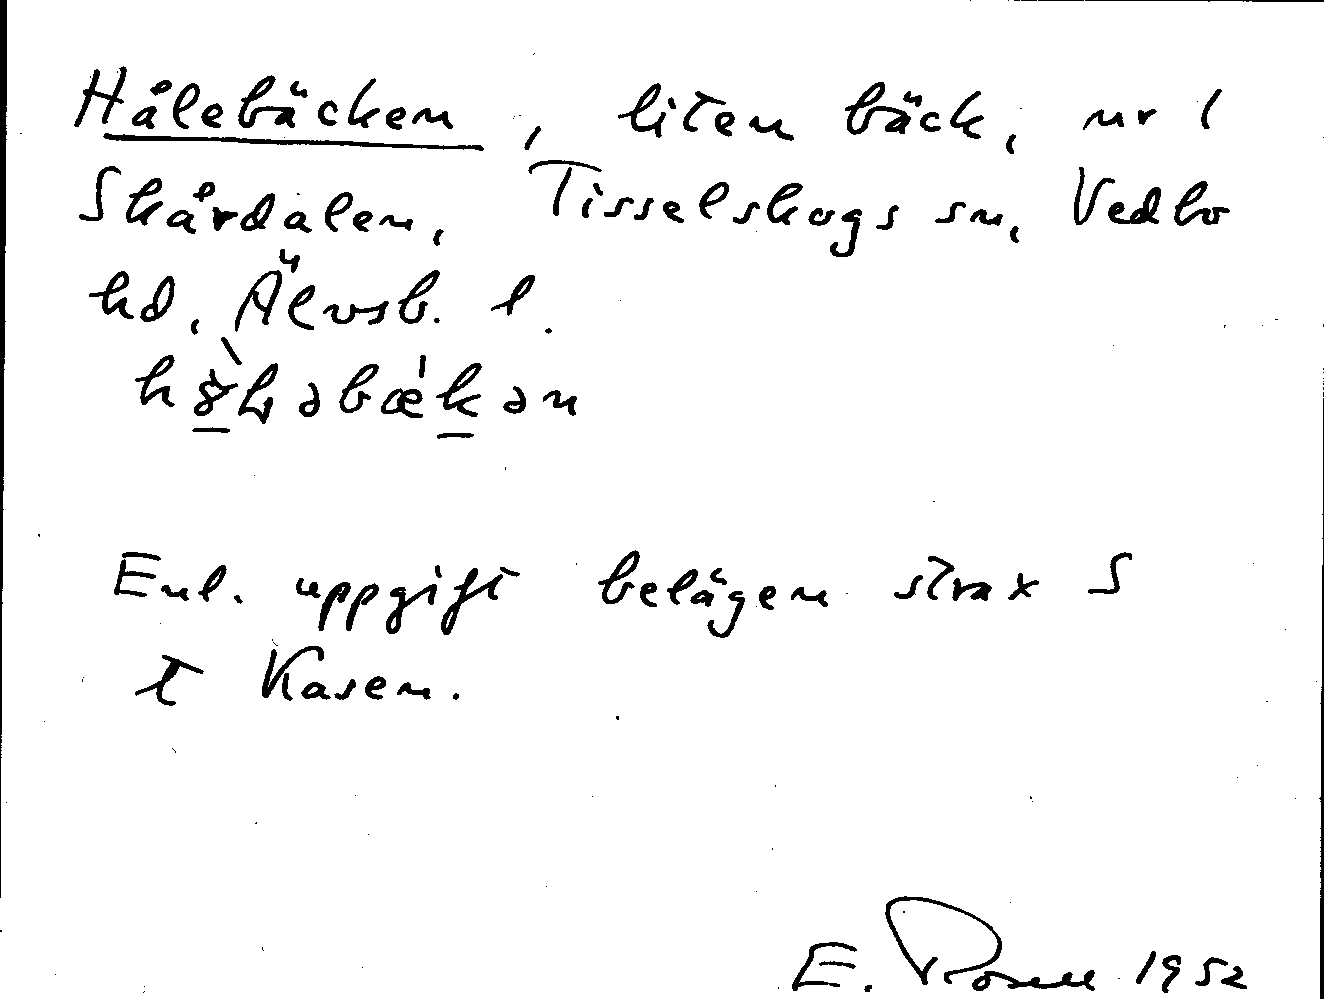 Hålebäcken, liten bäck, nr 1
Skårdalen, Tisselskogs sn, Vedbo
hd, Älvsb. l.
Enl. uppgift belägen strax S
t Kasen.
E. Rosell 1952